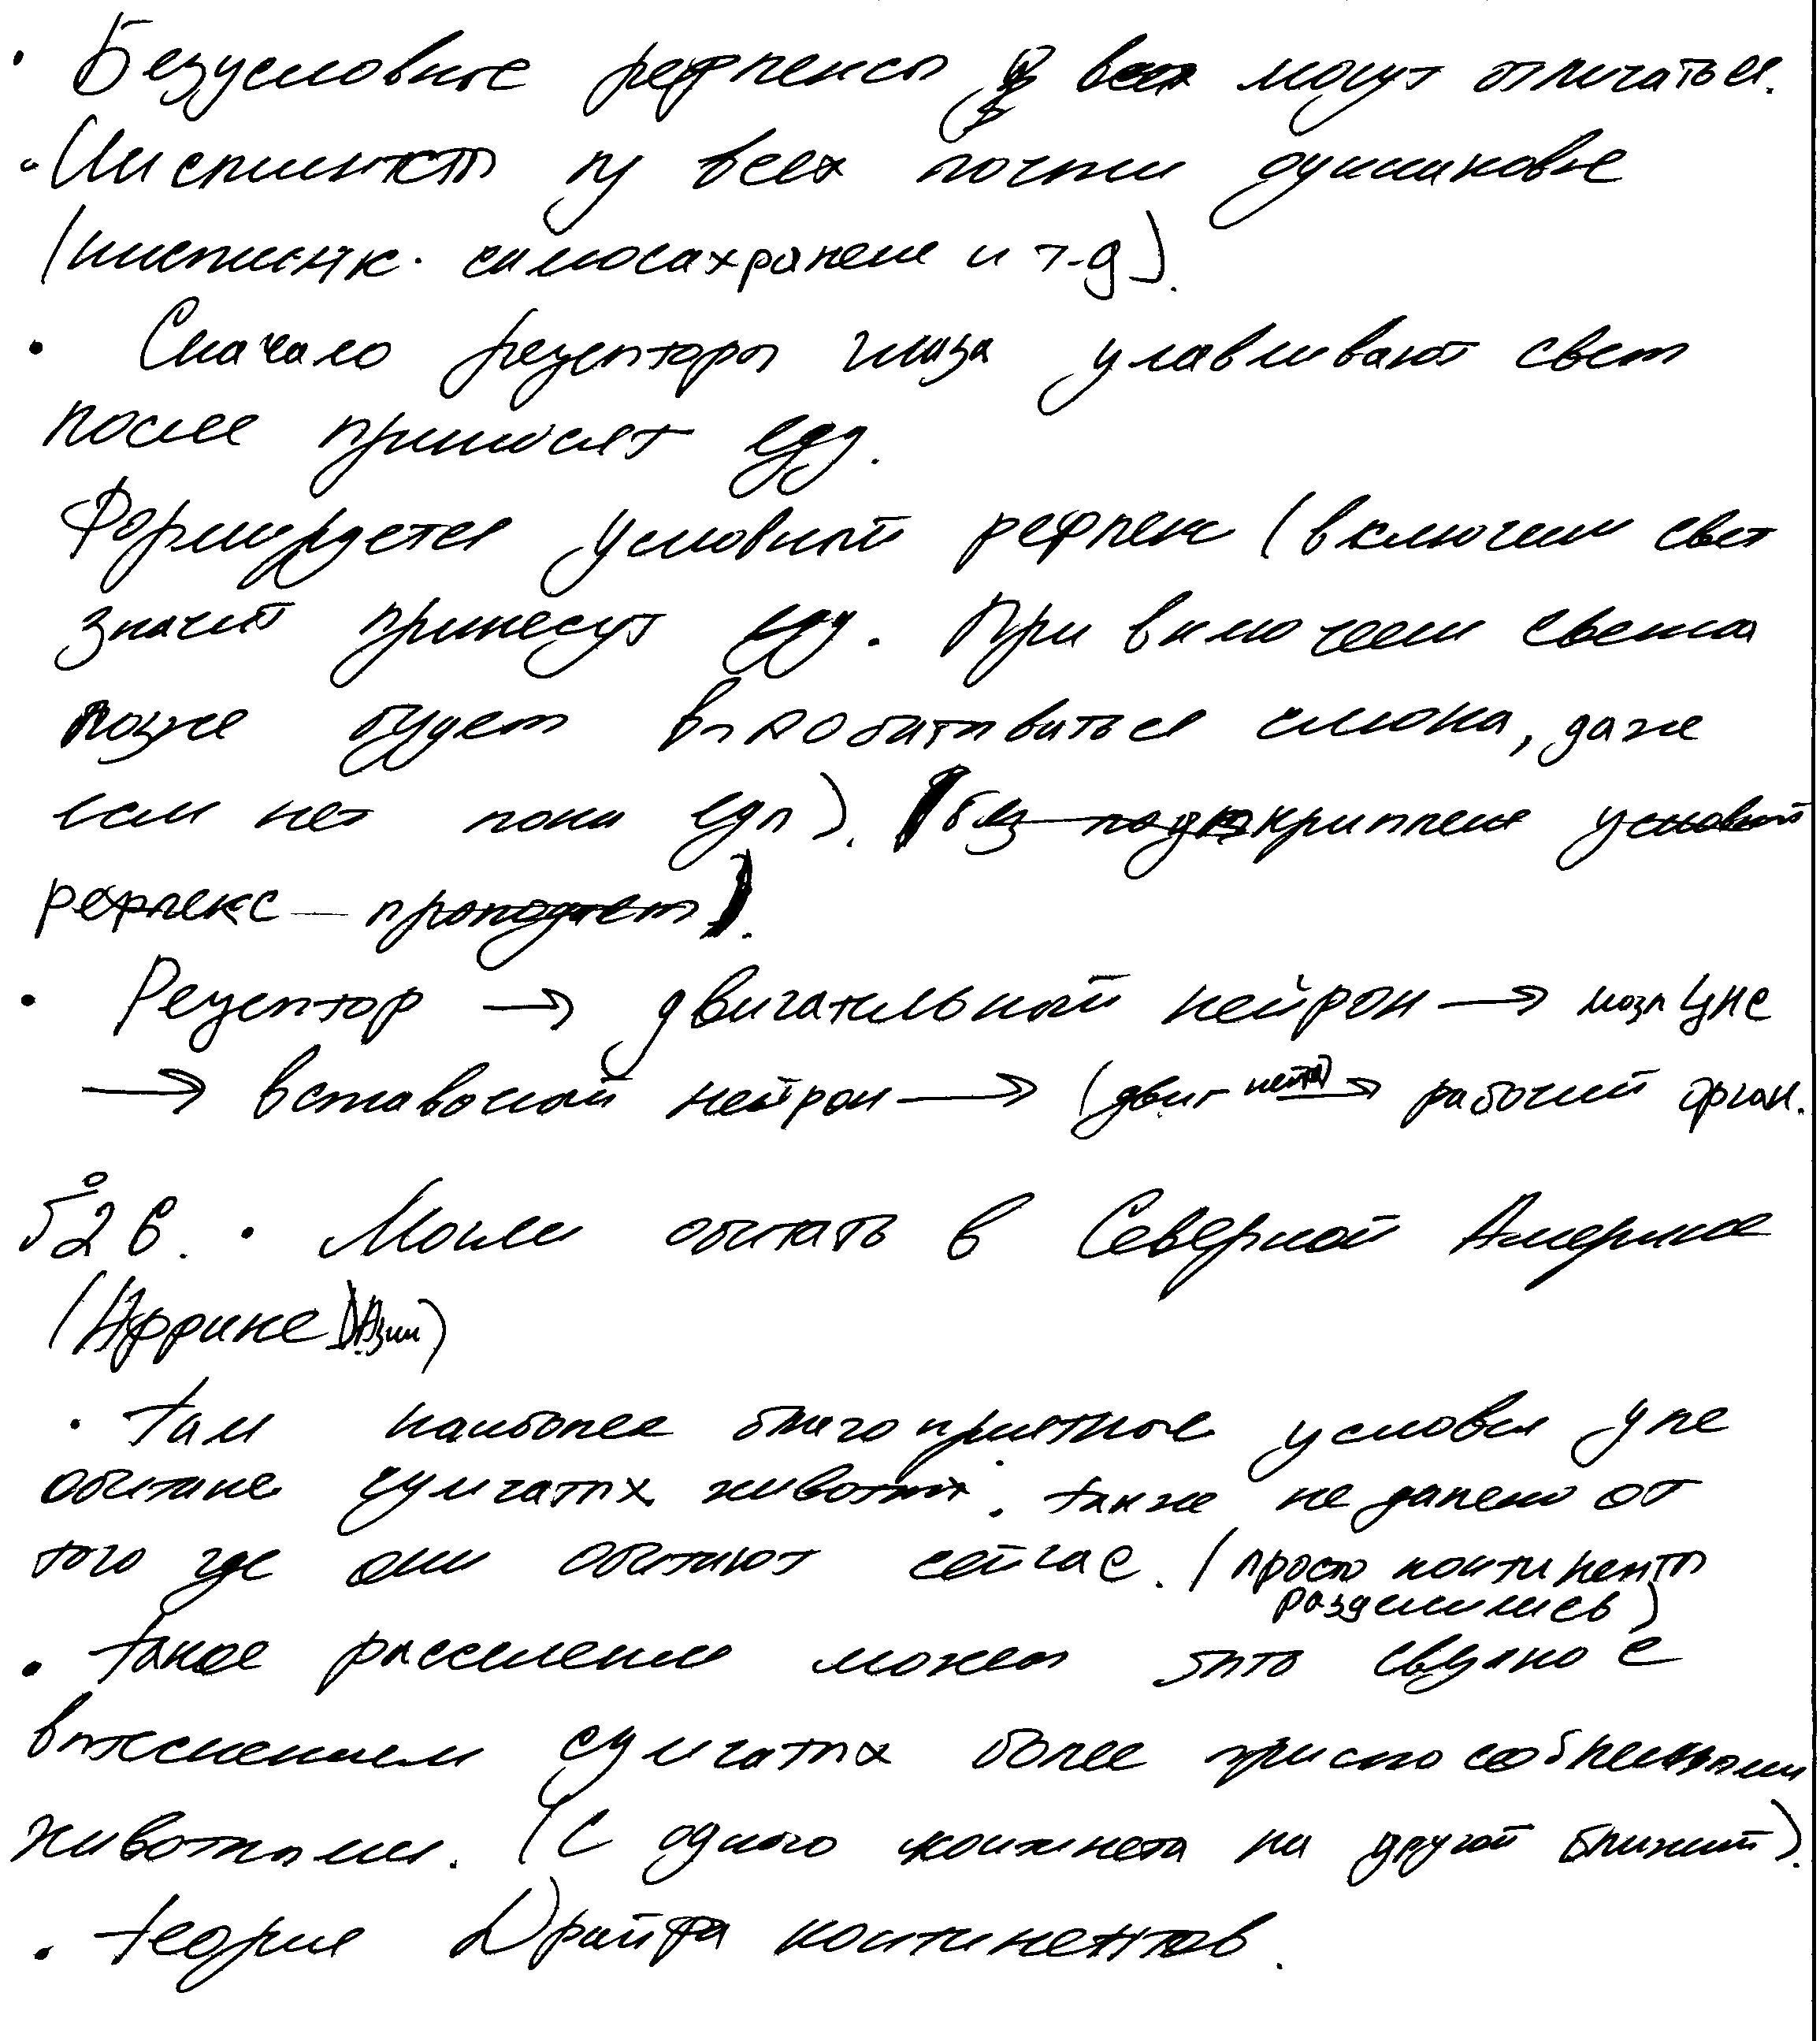 • Безусловные рефлексы у всех могут отличаться.
• Инстинкты у всех почти одинаковые
(инстинк. самосахранение и т.д).
• Сначало рецепторы глаза улавливают свет
после приносят еду.
Формируется условный рефлекс (включили свет
значит принесут еду. При включеем света
позже будет вырабатываться слюна, даже
если нет пока еды). (без подкрипление условный
рефлекс пропадает).
• Рецептор → двигательный нейрон → ЦНС
→ вставочный нейрон → (двиг нейр) → рабочий орган.
• Могли обитать в Северной Америке
(Африке) Азии)
• Там наиболее благоприятные условия для
обитание сумчатых животных. также не далеко от
того где они обитают сейчас. (просто континенты
разделились)
• такое расселение может быть связано с
вытеснением сумчатых более приспособленными
животными. (с одного континета на другой ближний).
• теория Дрейфа континентов.